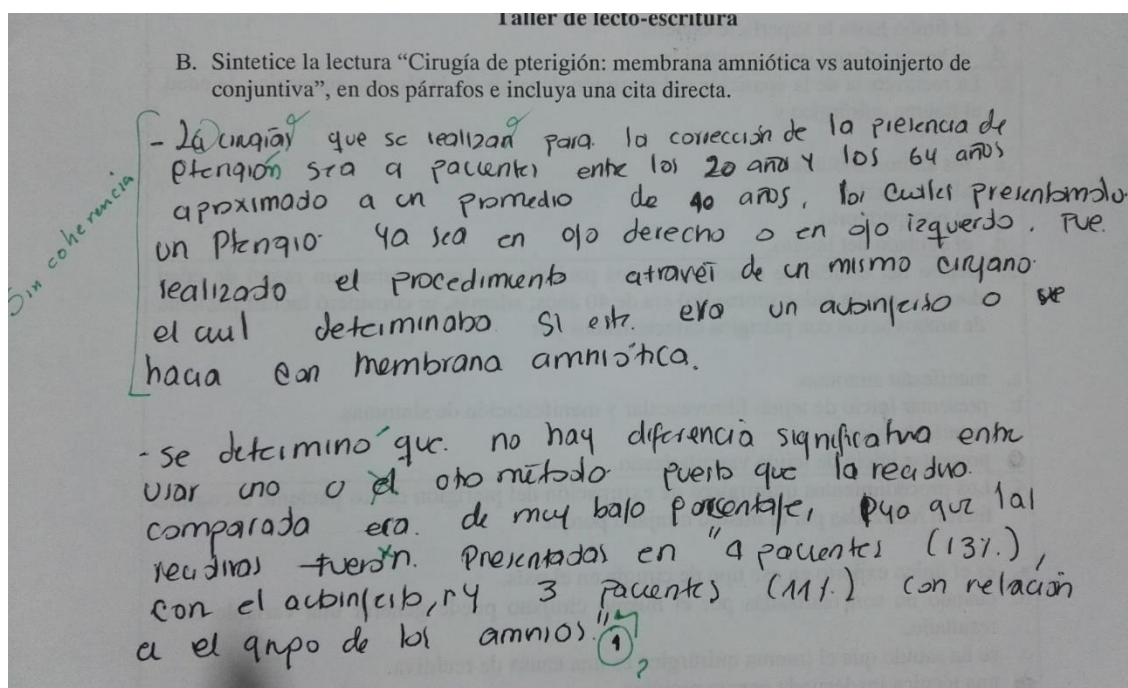 Taller de lecto-escritura
B. Sintetice la lectura “Cirugía de pterigión: membrana amniótica vs autoinjerto de
conjuntiva”, en dos párrafos e incluya una cita directa.
- La cirugía que se realizan para la corrección de la presencia de
Pterigión sea a pacientes entre los 20 años y los 64 años
aproximado a un promedio de 40 años, los cuales presentan solo
un Pterigio ya sea en ojo derecho o en ojo izquerdo. Fue
realizado el procedimiento atravez de un mismo cirujano
el cual determinaba si este era un autoinjerto o se
hacia con membrana amniótica.
Sin coherencia
- Se determino que no hay diferencia significativa entre
usar uno u el otro método puesto que la recidiva
comparada era de muy bajo porcentaje, que las
recidivas fueron presentadas en "4 pacientes (13%),
con el autoinjerto, y 3 pacientes (11%) con relación
a el grupo de los amnios" 1
?